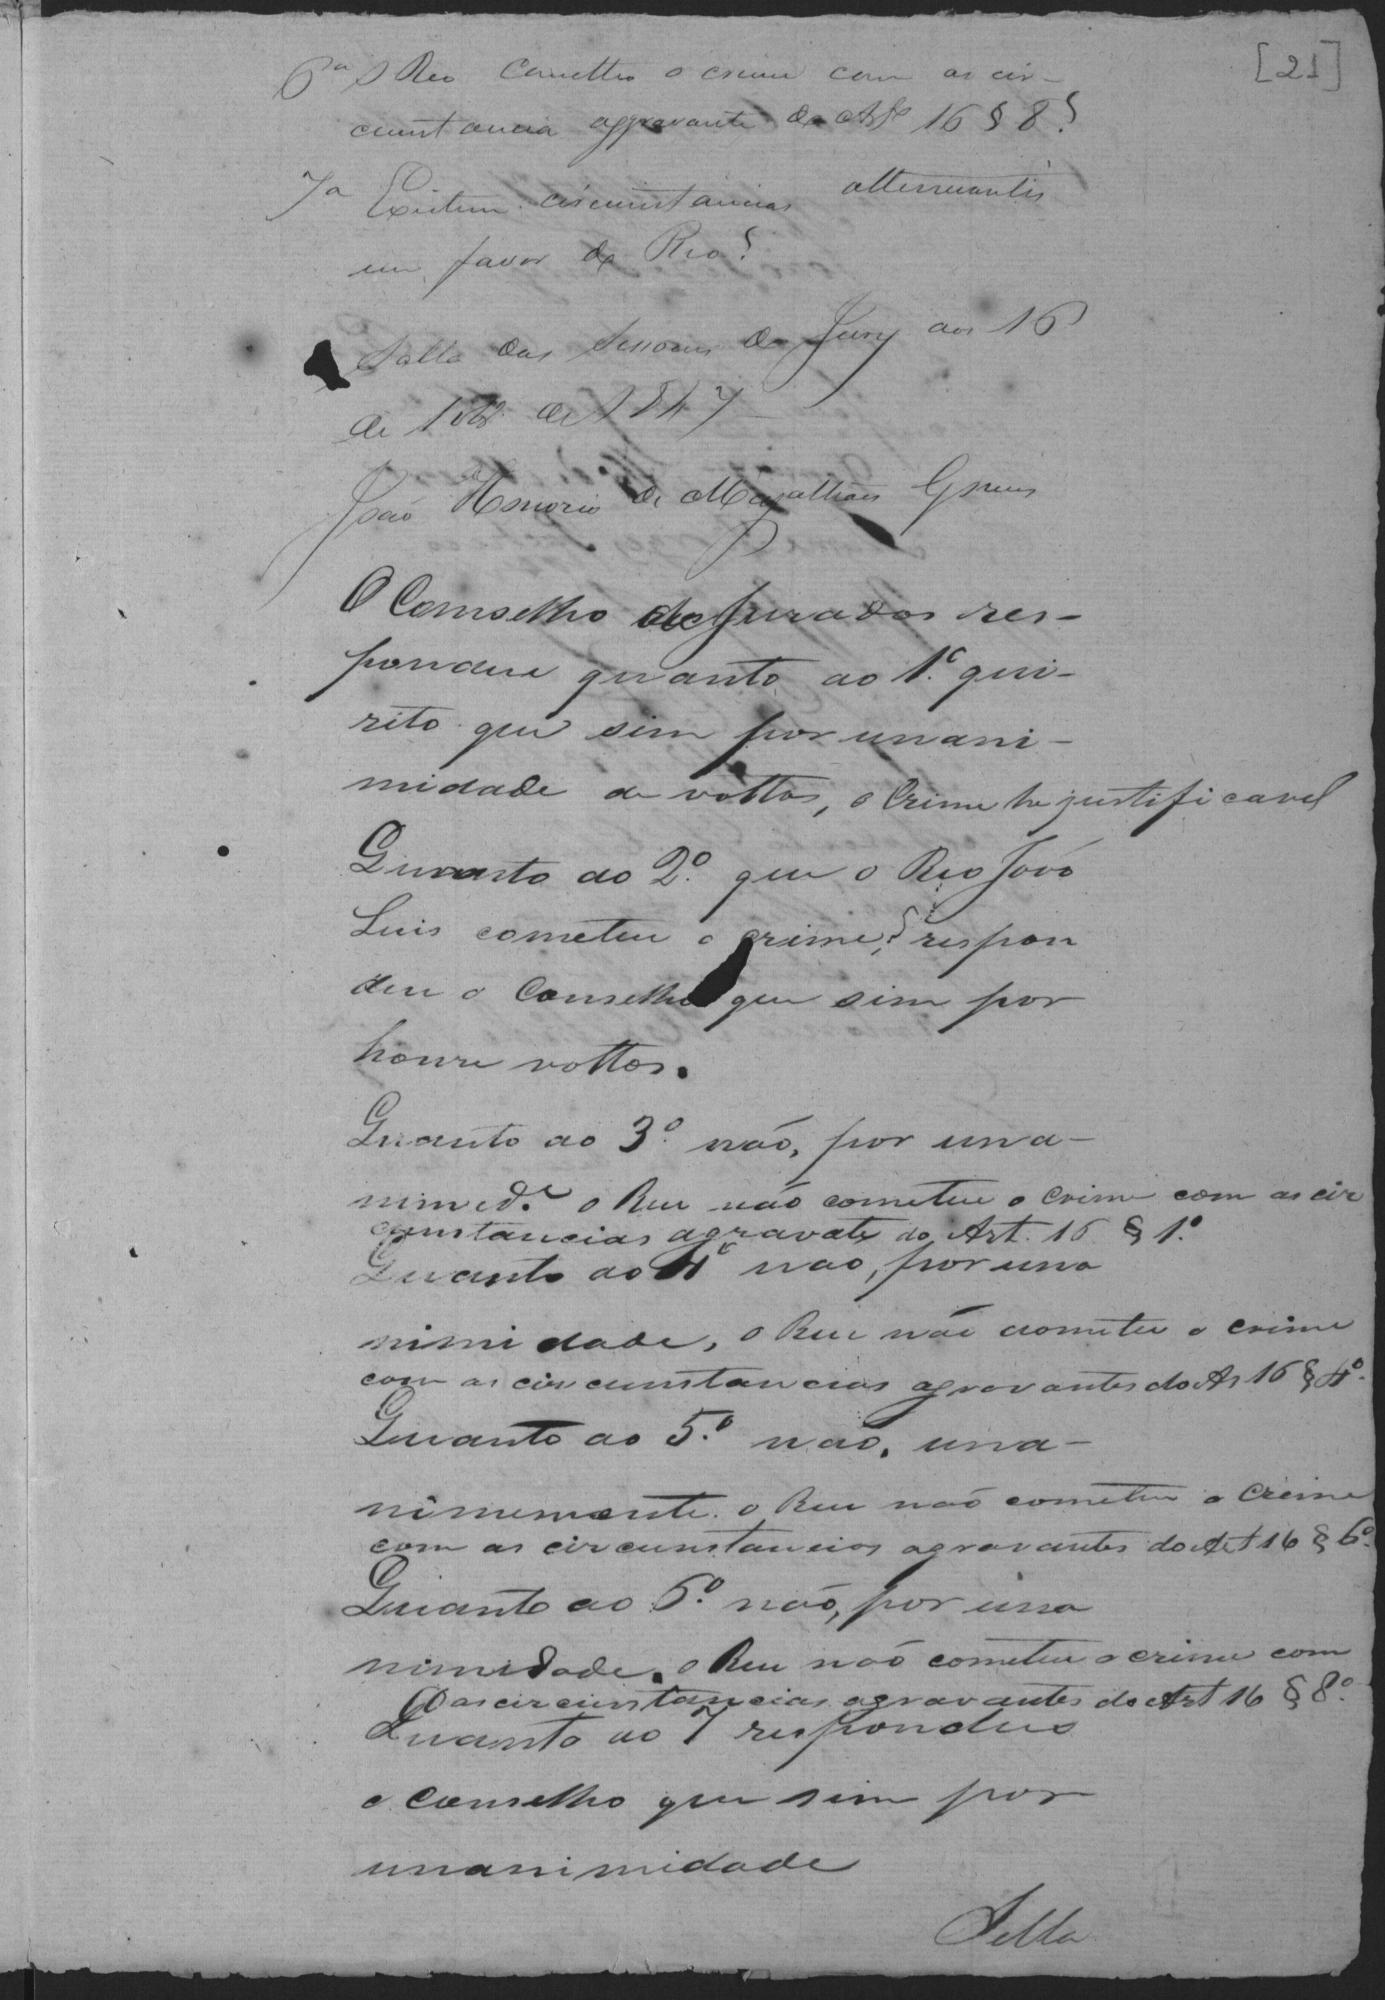 [21]
6ª O Reo cometteo o crime com as cir-
cunstancia aggravante do Artº 16 § 8?
7ª Existem circunstancias attenuantes
em favor do Reo?
Salla das Sessoens do Jury aos 16
de de 1847
João Honorio de Magalhães Gomes
O Conselho de Jurados res-
pondeu quanto ao 1º qui-
sito que sim por unani-
midade de vottos, o Crime he justificavel
Quanto ao 2º que o Reo João
Luis cometeu o crime? respon
deu o Conselho que sim por
honze vottos.
Quanto ao 3º não, por una-
nimid.e o Reu não cometeu o crime com as cir
cunstancias agravates do Art. 16 § 1º
Quanto ao 4º não, por una
nimidade, o Reu não cometeu o crime
com as circunstancias agravantes do Ar 16 § 4º
Quanto ao 5º não, una-
nimemente. o Reu não cometeu o crime
com as circunstancias agravantes do Art 16 § 6º
Quanto ao 6º não, por una
nimidade. o Reu não cometeu o crime com
as circunstancias agravantes do Art 16 § 8º
Quanto ao 7 respondeo
o Conselho que sim por
unanimidade
Salla